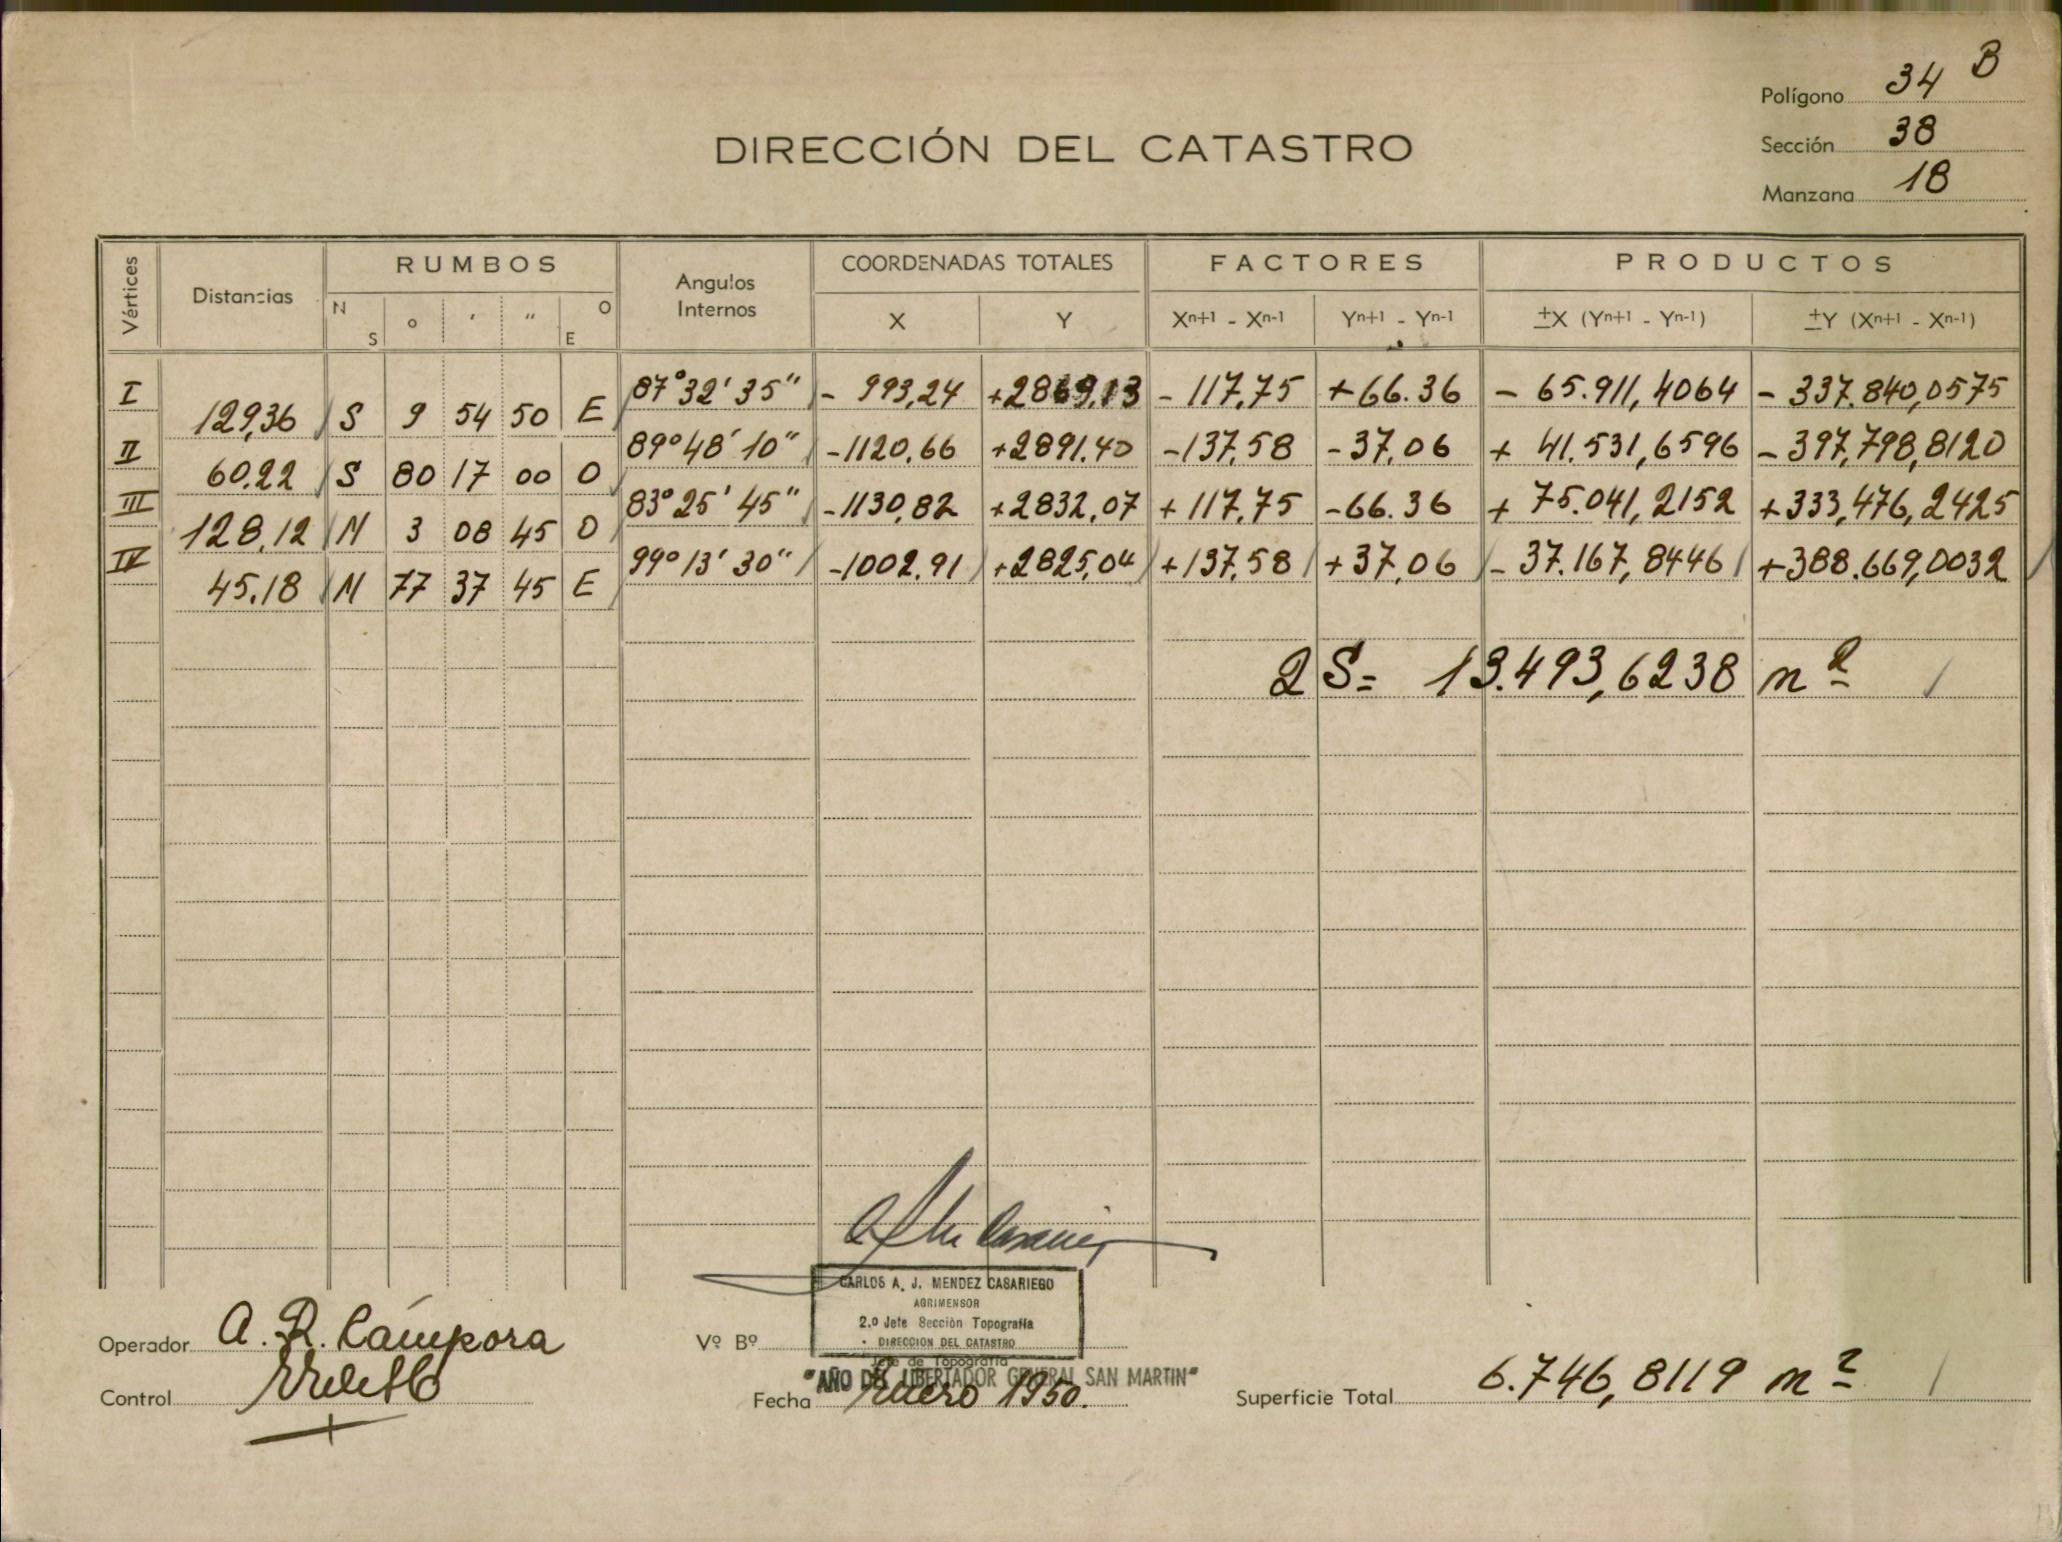 Polígono 34 B
DIRECCIÓN DEL CATASTRO
Sección 38
Manzana 18
Vértices
Distancias
RUMBOS
N S
o
'
"
O E
Angulos Internos
COORDENADAS TOTALES
X
Y
FACTORES
Xn+1 - Xn-1
Yn+1 - Yn-1
PRODUCTOS
±X (Yn+1 - Yn-1)
±Y (Xn+1 - Xn-1)
I 87°32'35" - 993,24 +2869,13 - 117,75 + 66.36 - 65.911,4064 - 337.840,0575
129,36 S 9 54 50 E
II 89°48'10" -1120.66 +2891.40 -137,58 -37,06 + 41.531,6596 - 397,798,8120
60.22 S 80 17 00 O
III 83°25'45" -1130,82 +2832,07 + 117,75 -66.36 + 75.041,2152 +333,476,2425
128,12 N 3 08 45 O
IV 99°13'30" -1002,91 +2825,04 +137,58 +37,06 - 37.167,8446 +388.669,0032
45,18 N 77 37 45 E
2 S= 13.493,6238 m2
CARLOS A. J. MENDEZ CASARIEGO
AGRIMENSOR
2.o Jefe Sección Topografía
DIRECCION DEL CATASTRO
Operador A. R. Cámpora
Vº Bº
Jefe de Topografía
"AÑO DEL LIBERTADOR GENERAL SAN MARTIN"
Control
Fecha Enero 1950.
Superficie Total 6.746,8119 m2